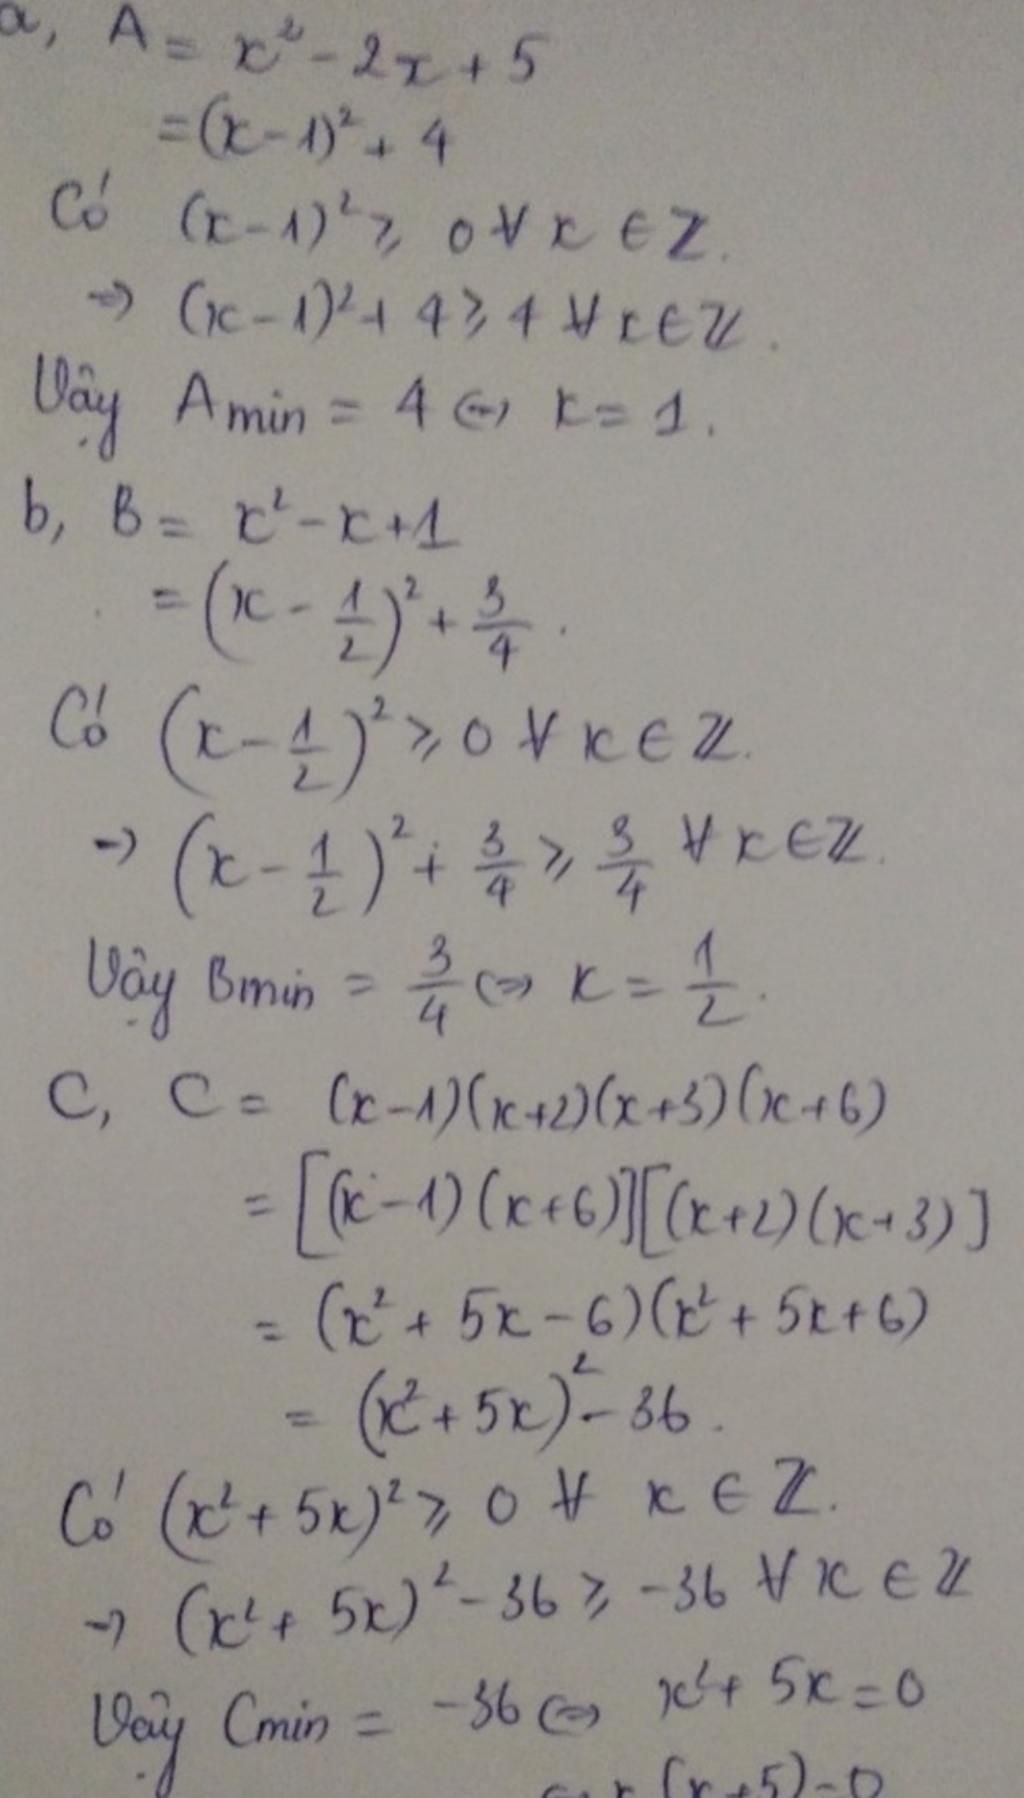 a, A = x² - 2x + 5
= (x - 1)² + 4
Có (x - 1)² ⩾ 0 ∀ x ∈ Z.
→ (x - 1)² + 4 ⩾ 4 ∀ x ∈ Z.
Vậy Amin = 4 ⇔ x = 1.
b, B = x² - x + 1
= (x - 1/2)² + 3/4.
Có (x - 1/2)² ⩾ 0 ∀ x ∈ Z.
→ (x - 1/2)² + 3/4 ⩾ 3/4 ∀ x ∈ Z.
Vậy Bmin = 3/4 ⇔ x = 1/2.
C, C = (x - 1)(x + 2)(x + 3)(x + 6)
= [(x - 1)(x + 6)][(x + 2)(x + 3)]
= (x² + 5x - 6)(x² + 5x + 6)
= (x² + 5x)² - 36.
Có (x² + 5x)² ⩾ 0 ∀ x ∈ Z.
→ (x² + 5x)² - 36 ⩾ -36 ∀ x ∈ Z
Vậy Cmin = -36 ⇔ x² + 5x = 0
⇔ x(x + 5) = 0